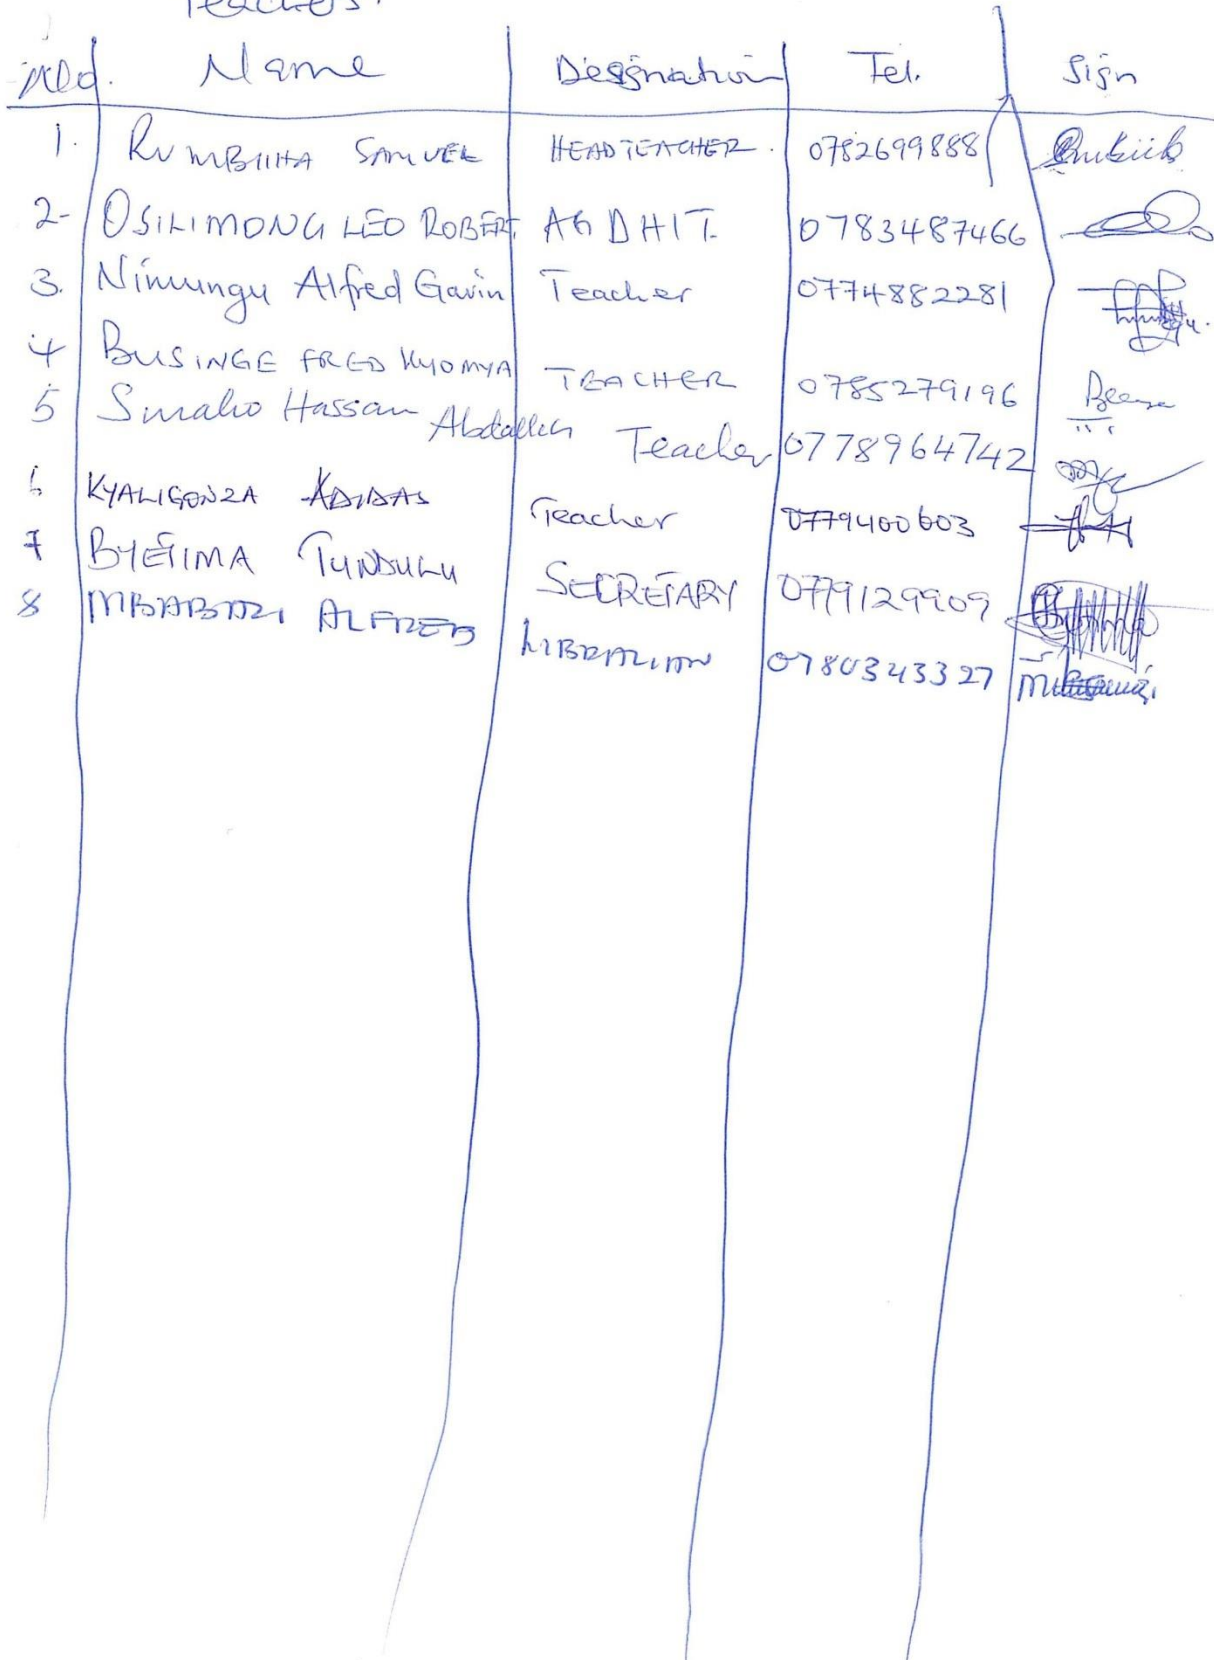 Teachers.
Name Designation Tel. Sign
1. RUMBIIHA SAMUEL HEADTEACHER. 0782699888
2- OSILIMONG LEO ROBERT AG DHIT. 0783487466
3. Nimungu Alfred Gavin Teacher 0774882281
4 BUSINGE FRED KYOMYA TEACHER 0785279196
5 Smaho Hassan Abdallah Teacher 0778964742
6 KYALIGONZA ADIDAS Teacher 0779400603
7 BYETIMA TUNDULU SECRETARY 0779129909
8 MBABAZI ALFRED LIBRALIAN 0780343327